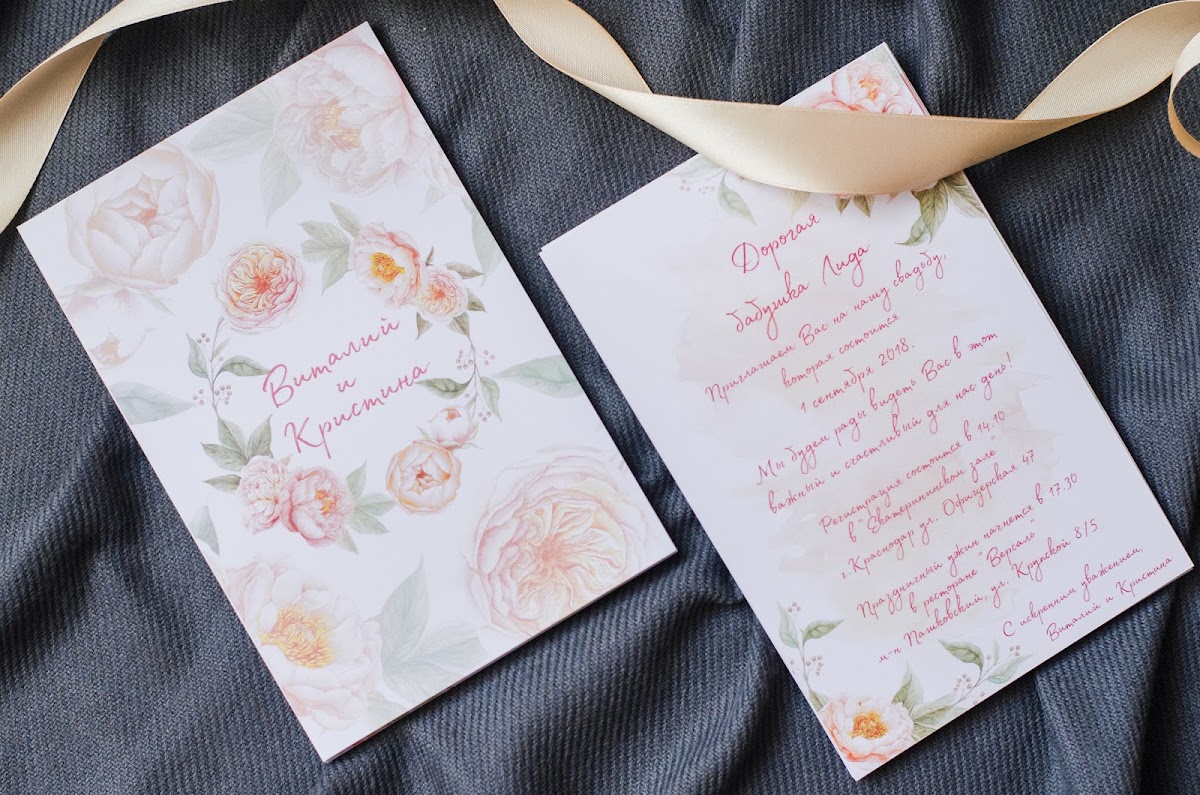 Виталий
и
Кристина
Дорогая
бабушка Лида
Приглашаем Вас на нашу свадьбу,
которая состоится
1 сентября 2018.
Мы будем рады видеть Вас в этот
важный и счастливый для нас день!
Регистрация состоится в 14.10
в "Екатерининском зале"
г.Краснодар ул. Офицерская 47
Праздничный ужин начнется в 17.30
в ресторане "Версаль"
м-н Пашковский, ул. Крупской 8/5
С искренним уважением,
Виталий и Кристина